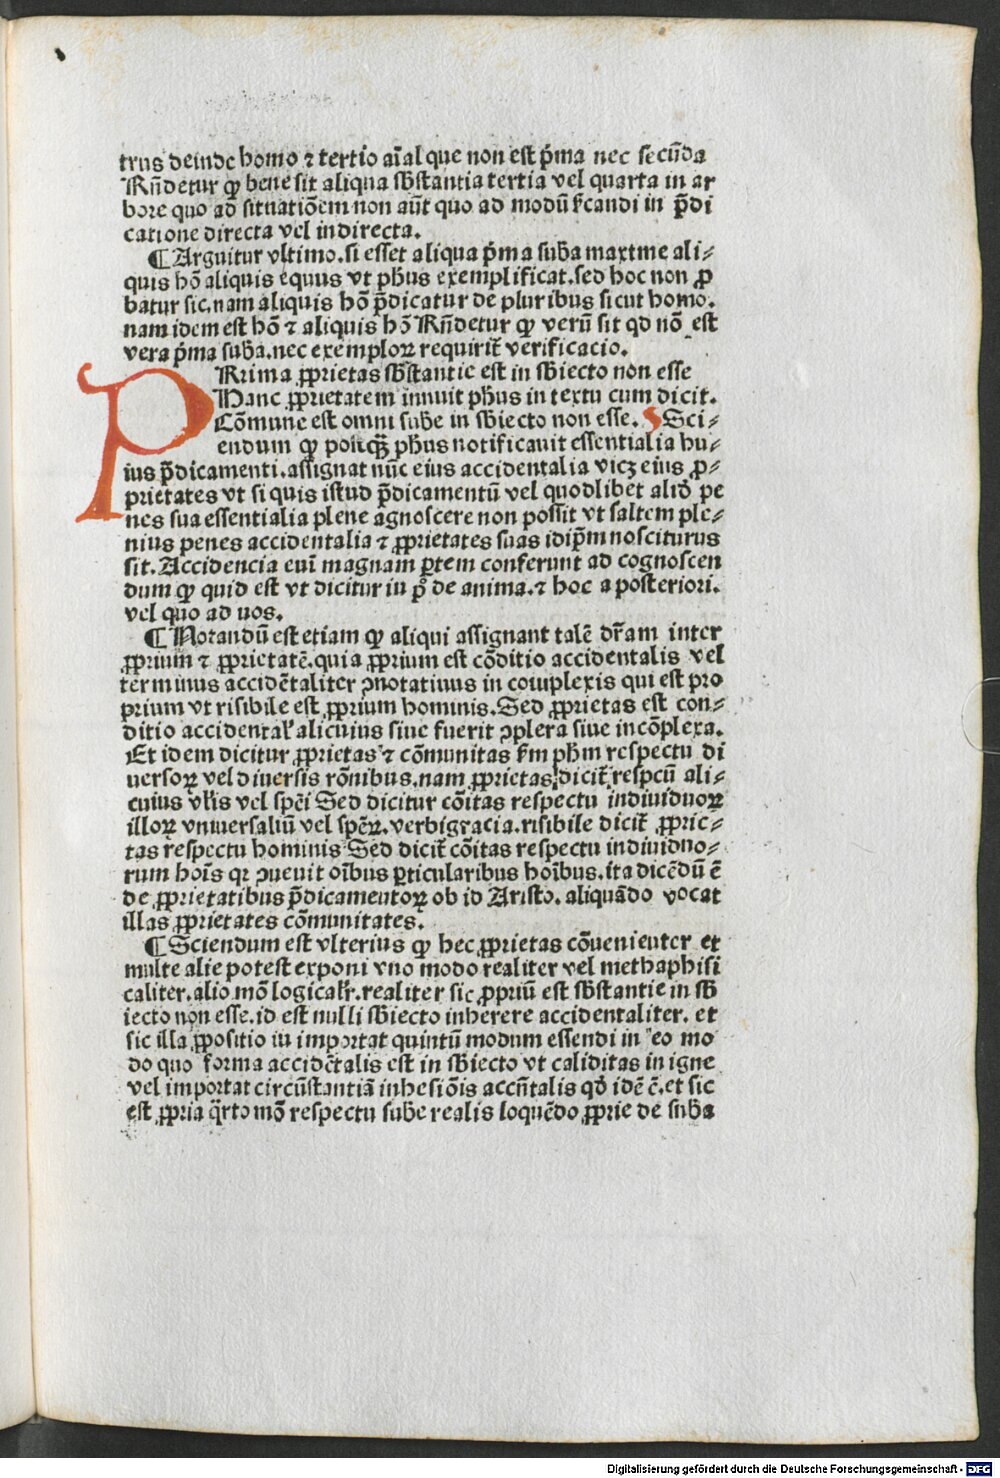 trus deinde homo ⁊ tertio aĩal que non est p̃ma nec secũda
Rñdetur ꝙ bene sit aliqua sb̃stantia tertia vel quarta in ar
bore quo ad situatiõem non aũt quo ad modũ p̃candi in p̃di
catione directa vel indirecta.
¶Arguitur vltimo. si esset aliqua p̃ma suba maxime ali⸗
quis hõ aliquis equus vt phus exemplificat. sed hoc non ꝓ
batur sic. nam aliquis hõ p̃dicatur de pluribus sicut homo.
nam idem est hõ ⁊ aliquis hõ Rñdetur ꝙ verũ sit qd nõ est
vera p̃ma suba. nec exemploꝝ requirit̃ verificacio.
PRima ꝓprietas sb̃stantie est in sb̃iecto non esse
Hanc ꝓprietatem innuit phus in textu cum dicit.
Cõmune est omni sube in sb̃iecto non esse. Sci⸗
endum ꝙ postꝗ̃ phus notificauit essentialia hu⸗
ius p̃dicamenti. assignat nũc eius accidentalia vicꝫ eius ꝓ⸗
prietates vt si quis istud p̃dicamentũ vel quodlibet aliđ pe
nes sua essentialia plene agnoscere non possit vt saltem ple⸗
nius penes accidentalia ⁊ ꝓprietates suas idip̃m nosciturus
sit. Accidencia eni̇̃ magnam ꝑtem conferunt ad cognoscen
dum ꝙ quid est vt dicitur in pº de anima. ⁊ hoc a posteriori.
vel quo ad nos.
¶Notandũ est etiam ꝙ aliqui assignant talẽ dr̃am inter
ꝓprium ⁊ ꝓprietatẽ. quia ꝓprium est cõditio accidentalis vel
terminus accidẽtaliter ꝯnotatiuus in complexis qui est pro
prium vt risibile est ꝓprium hominis. Sed ꝓprietas est con⸗
ditio accidental̃ alicuius siue fuerit ꝯplexa siue incõplexa.
Et idem dicitur ꝓprietas ⁊ cõmunitas s̃m phm respectu di
uersoꝝ vel diuersis rõnibus. nam ꝓprietas dicit̃ respcũ ali⸗
cuius vl̃is vel spẽi Sed dicitur cõitas respectu indiuiduoꝝ
illoꝝ vniuersaliũ vel spẽꝝ. verbigracia. risibile dicit̃ ꝓprie⸗
tas respectu hominis Sed dicit̃ cõitas respectu indiuiduo⸗
rum hoĩs qꝛ ꝯuenit oĩbus ꝑticularibus hoĩbus. ita dicẽdũ ẽ
de ꝓprietatibus p̃dicamentoꝝ ob id Aristo. aliquãdo vocat
illas ꝓprietates cõmunitates.
¶Sciendum est vlterius ꝙ hec ꝓprietas cõuenienter et
multe alie potest exponi vno modo realiter vel methaphisi
caliter. alio mõ logical̃r. realiter sic ꝓpriũ est sb̃stantie in sb̃
iecto non esse. id est nulli sb̃iecto inherere accidentaliter. et
sic illa ꝓpositio in importat quintũ modum essendi in eo mo
do quo forma accidẽtalis est in sb̃iecto vt caliditas in igne
vel importat circũstantiã inhesiõis accñtalis qđ idẽ ẽ. et sic
est ꝓpria q̃rto mõ respectu sube realis loquẽdo ꝓprie de suba
Digitalisierung gefördert durch die Deutsche Forschungsgemeinschaft - DFG